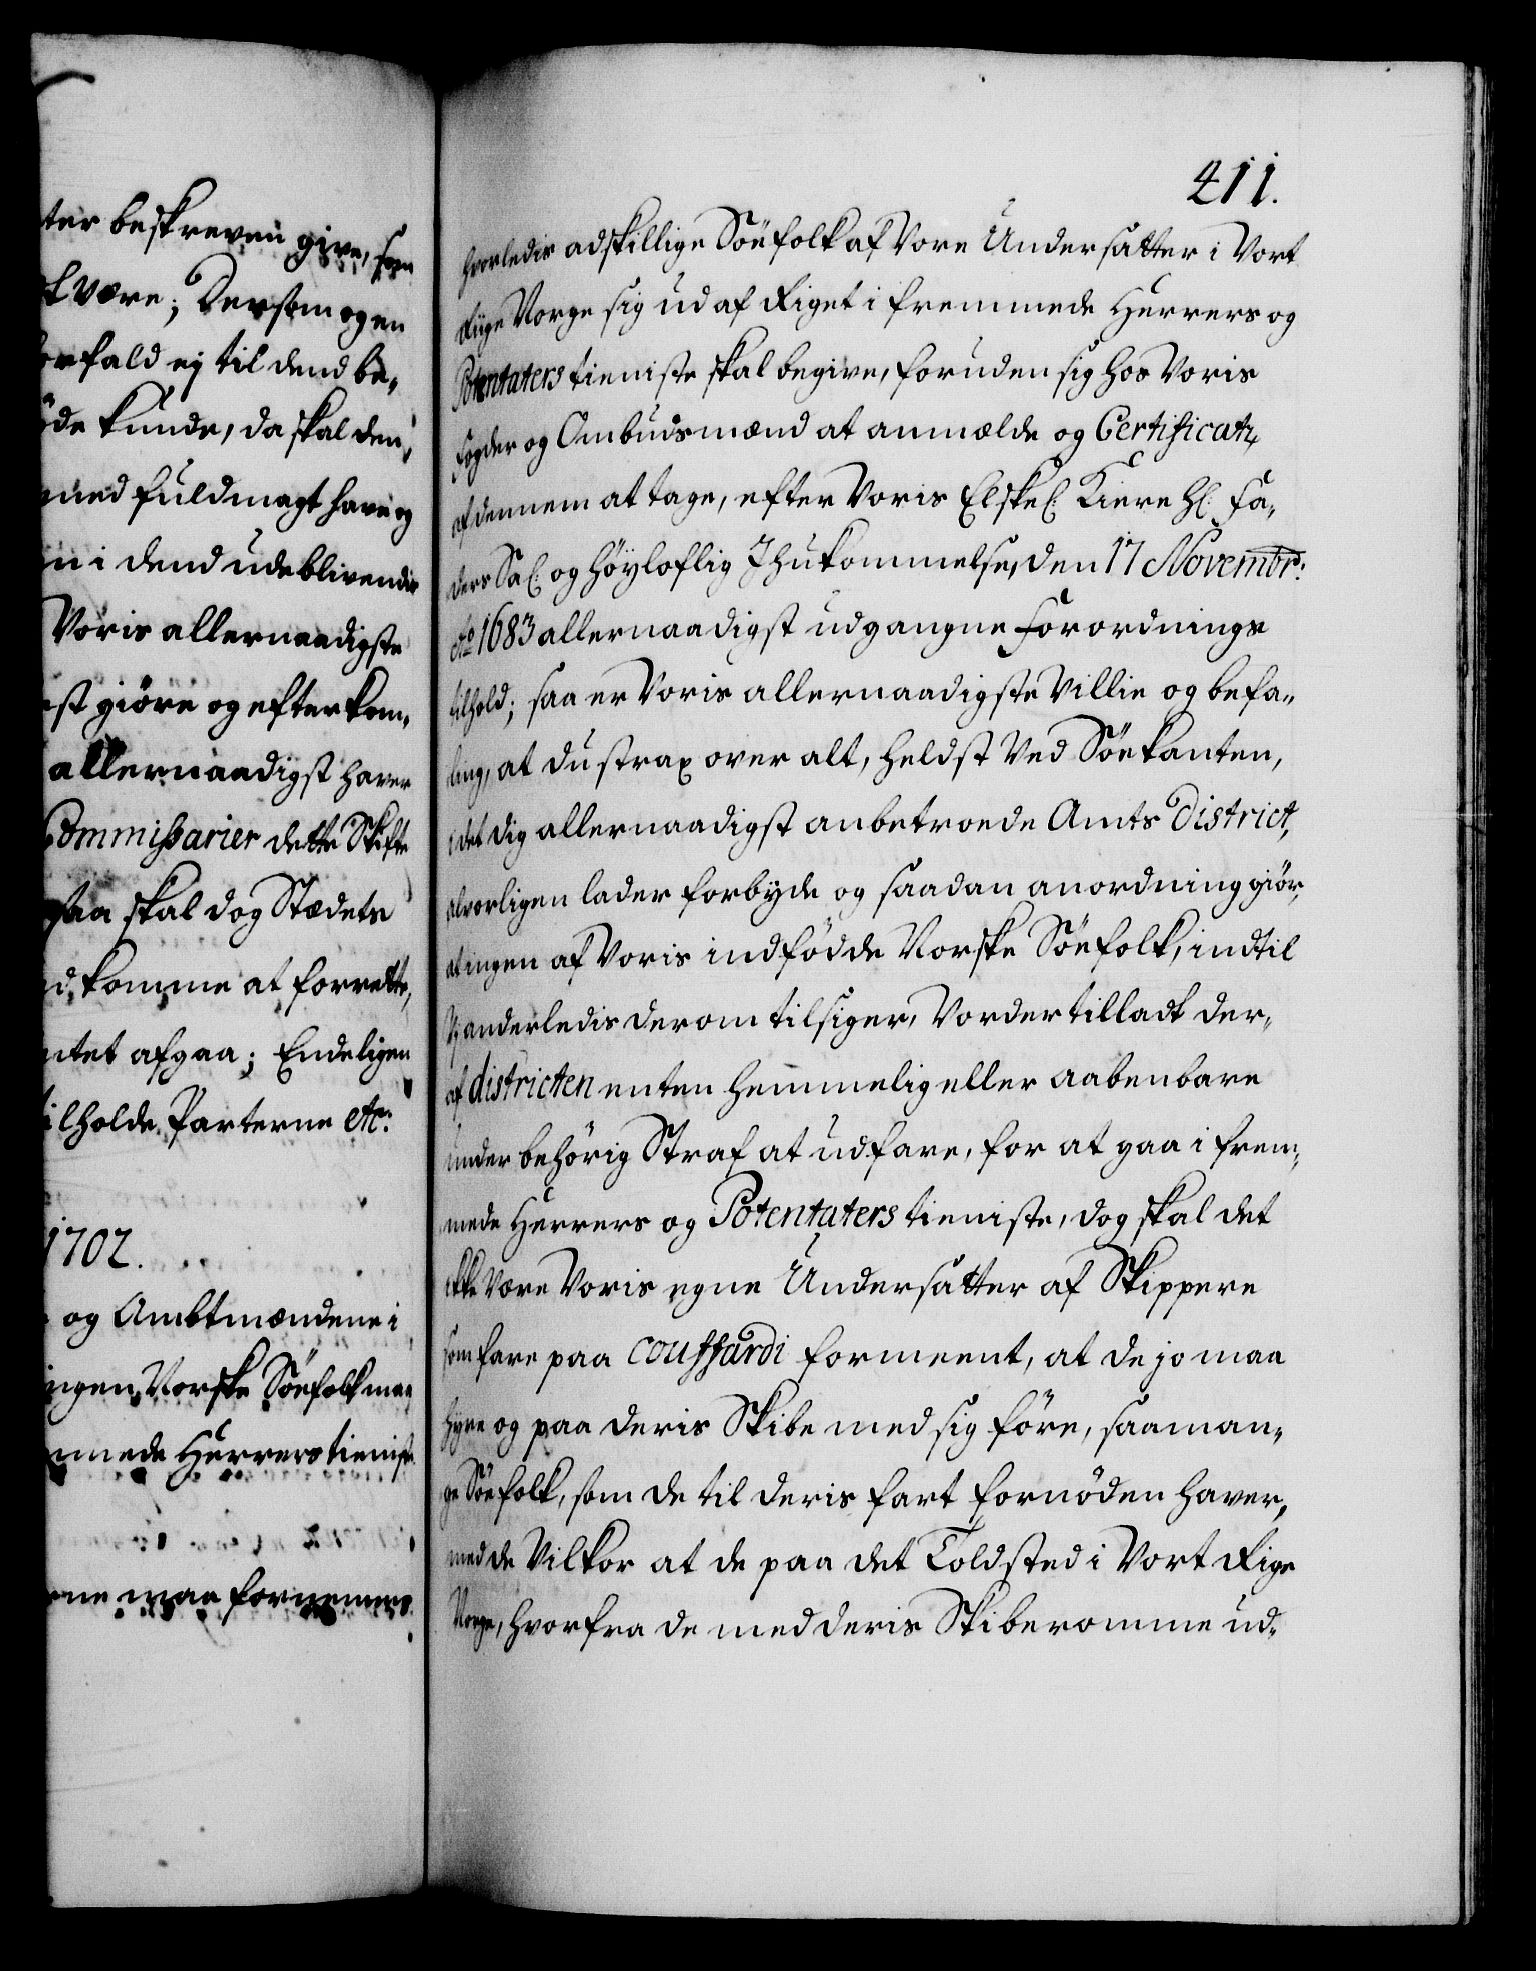 ter beskreven give, som
l være; Dersom og en
orfald ej til dend be„
öde kunde, da skal den„
med fuldmagt have og
n i dend udeblivendis
Voris allernaadigste
st giöre og efterkom„
allernaadigst haver
Commissarier dette Skifte
saa skal dog Stædets
d komme at forrette,
ntet afgaa; Endeligen
ilholde Parterne etc:
1702.
og Ambtmændene i
ingen Norske Söefolk maa
mmede Herrers tieniste
rne maa fornemme
411.
hvorledis adskillige Söefolk af Vore Undersatter i Vort
Riige Norge sig ud af Riget i fremmede Herrers og
Potentaters tieniste skal begive, foruden sig hos Voris
Fogder og Ombudsmænd at anmælde og Certificats,
af dennem at tage, efter Voris Elskel: Kiere Hl: Fa„
ders Sal: og höyloflig Ihukommelse, den 17 Novembr:
Ao 1683 allernaadigst udgangne Forordnings
tilhold; saa er Voris allernaadigste Villie og befa„
ling, at du strax over alt, heldst Ved Söekanten,
i det dig allernaadigst anbetroede Amts District,
alvorligen lader forbyde og saadan anordning giör,
at ingen af Voris indfödde Norske Söefolk, indtil
Vj anderledis derom tilsiger, Vorder tilladt der„
af districten enten hemmelig eller aabenbare
under behörig Straf at udfare, for at gaa i frem„
mede Herrers og Potentaters tieniste, dog skal det
ikke Være Voris egne Undersatter af Skippere
som fare paa couffardi formeent, at de jo maa
hyre og paa deris Skibe med sig före, saa man„
ge Söefolk, som de til deris fart fornöden haver,
med de Vilkor at de paa det Toldsted i Vort Rige
Norge, hvorfra de med deris Skiberomme ud„